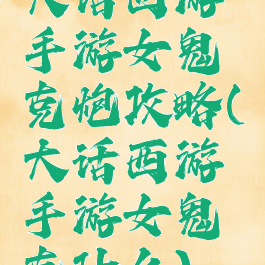 大话西游
手游女鬼
克炮攻略(
大话西游
手游女鬼
克攻么)